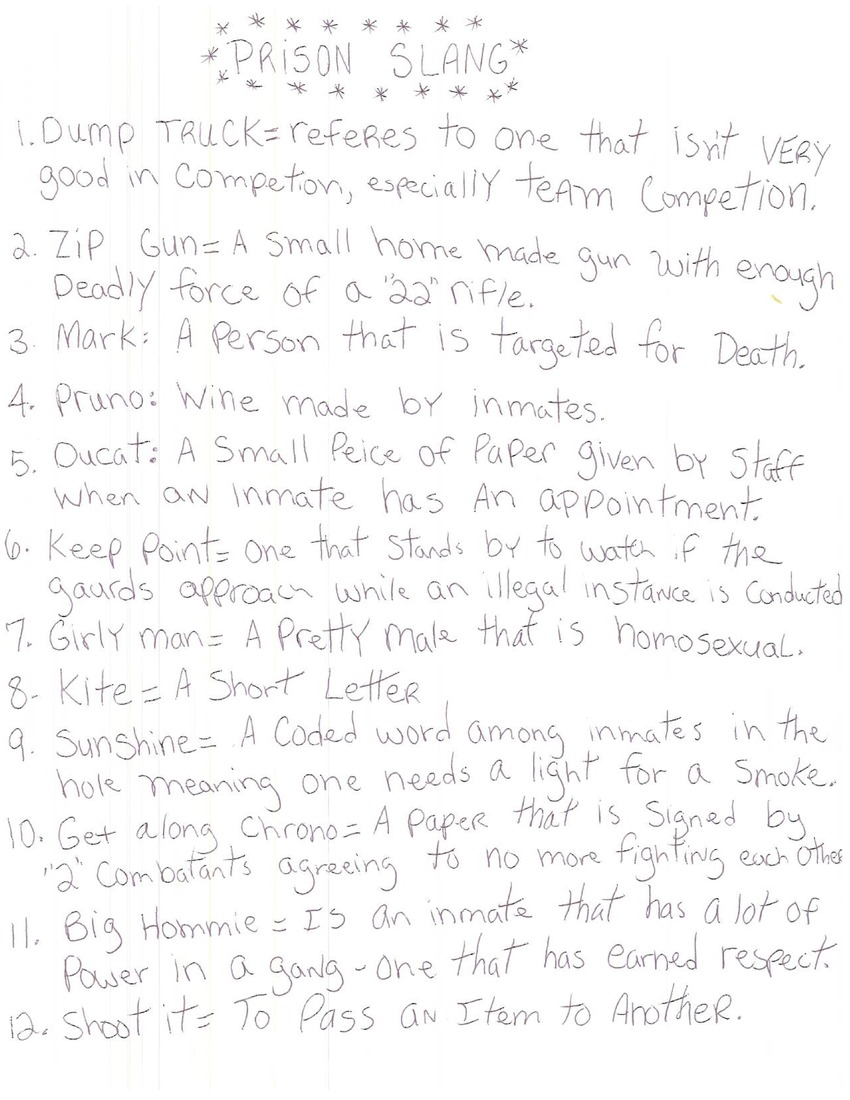 * * * * * * * *
*PRISON SLANG*
* * * * * * * * *
1. Dump TRUCK= refeRes to one that isn't VERY
good in Competion, especially team Competion.
2. Zip Gun= A Small home made gun with enough
Deadly force of a "22" rifle.
3. Mark: A Person that is targeted for Death.
4. Pruno: Wine made by inmates.
5. Ducat: A Small Peice of Paper given by Staff
when an inmate has An appointment.
6. Keep Point= one that Stands by to watch if the
gaurds approach while an illegal instance is Conducted
7. Girly man= A Pretty Male that is homosexual.
8- Kite= A Short Letter
9. Sunshine= A Coded word among inmates in the
hole meaning one needs a light for a Smoke.
10. Get along Chrono= A Paper that is Signed by
"2" Combatants agreeing to no more fighting each Other
11. Big Hommie = Is an inmate that has a lot of
Power in a gang-one that has earned respect.
12. Shoot it= To Pass an Item to Another.